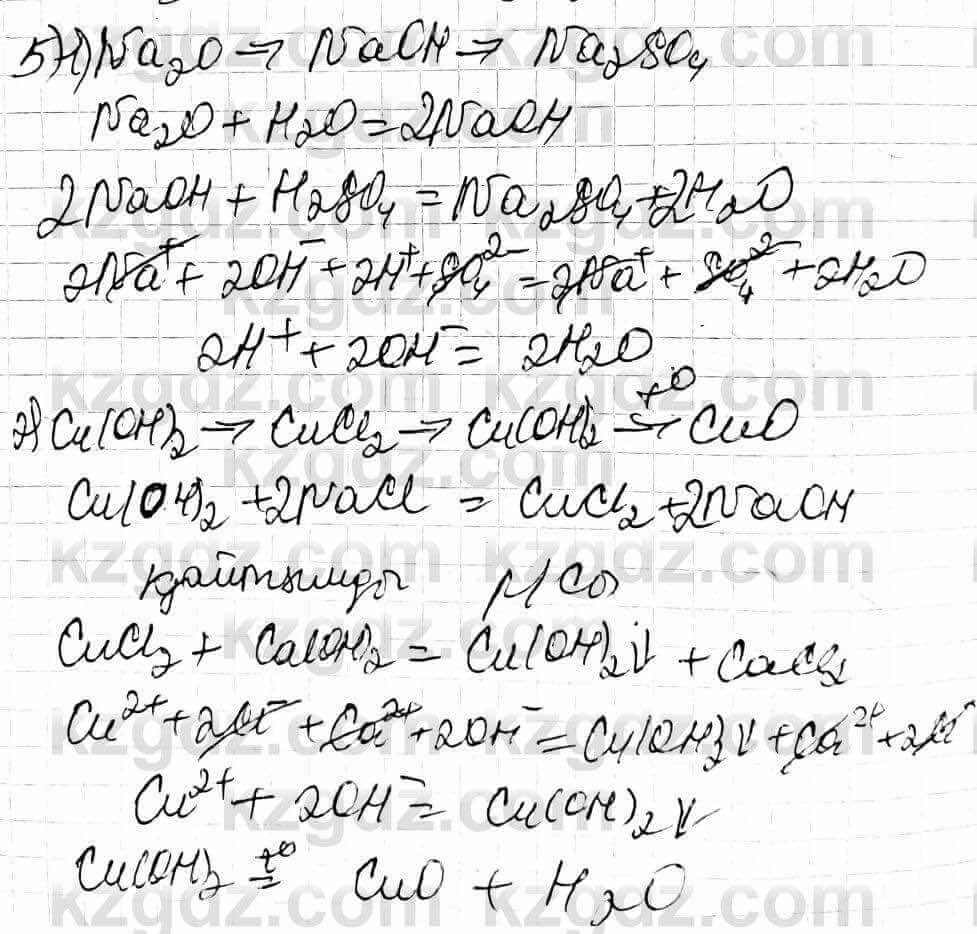 5) 1) Na₂O → NaOH → Na₂SO₄
Na₂O + H₂O = 2NaOH
2NaOH + H₂SO₄ = Na₂SO₄ + 2H₂O
2Na⁺ + 2OH⁻ + 2H⁺ + SO₄²⁻ = 2Na⁺ + SO₄²⁻ + 2H₂O
2H⁺ + 2OH⁻ = 2H₂O
2) Cu(OH)₂ → CuCl₂ → Cu(OH)₂ →t⁰ CuO
Cu(OH)₂ + 2NaCl = CuCl₂ + 2NaOH
қайтымды
CuCl₂ + Ca(OH)₂ = Cu(OH)₂↓ + CaCl₂
Cu²⁺ + 2Cl⁻ + Ca²⁺ + 2OH⁻ = Cu(OH)₂↓ + Ca²⁺ + 2Cl⁻
Cu²⁺ + 2OH⁻ = Cu(OH)₂↓
Cu(OH)₂ =t⁰ CuO + H₂O
kzgdz.com